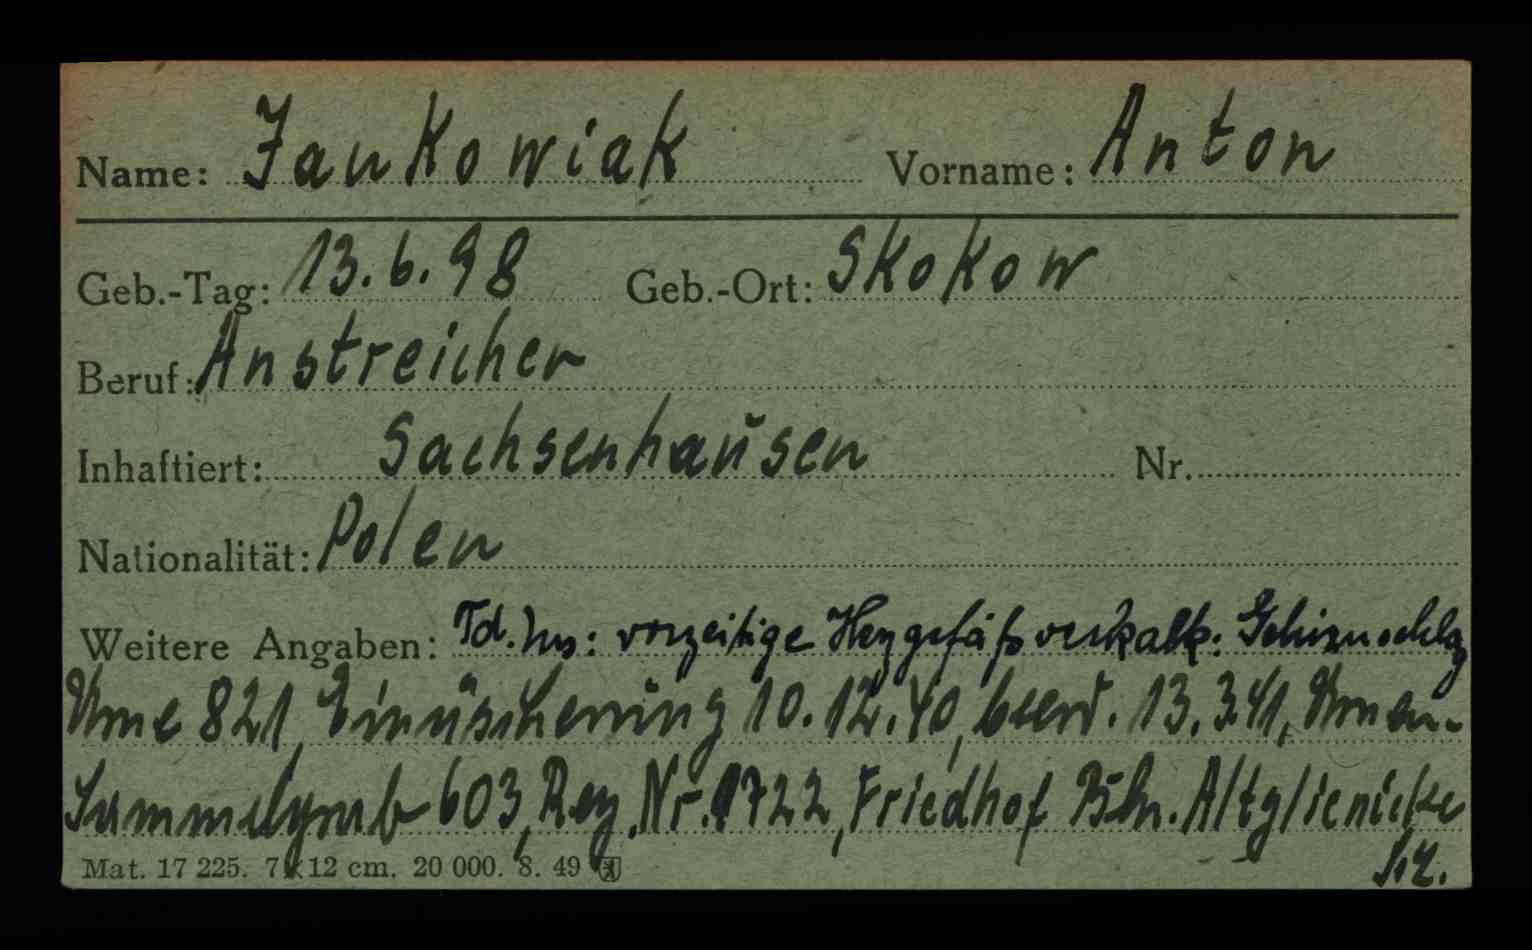 Name: Jankowiak Vorname: Anton
Geb.-Tag: 13.6.98 Geb.-Ort: Skokow
Beruf: Anstreicher
Inhaftiert: Sachsenhausen Nr.
Nationalität: Polen
Weitere Angaben: Td. Urs: vorzeitige Herzgefäßverkalk. Gehirnschlag
Urne 821, Einäscherung 10.12.40, beerd. 13.3.41, Urnen-
Sammelgrab 603, Reg. Nr. 1722, Friedhof Bln. Altglienicke
Mat. 17 225. 7 x 12 cm. 20 000. 8. 49